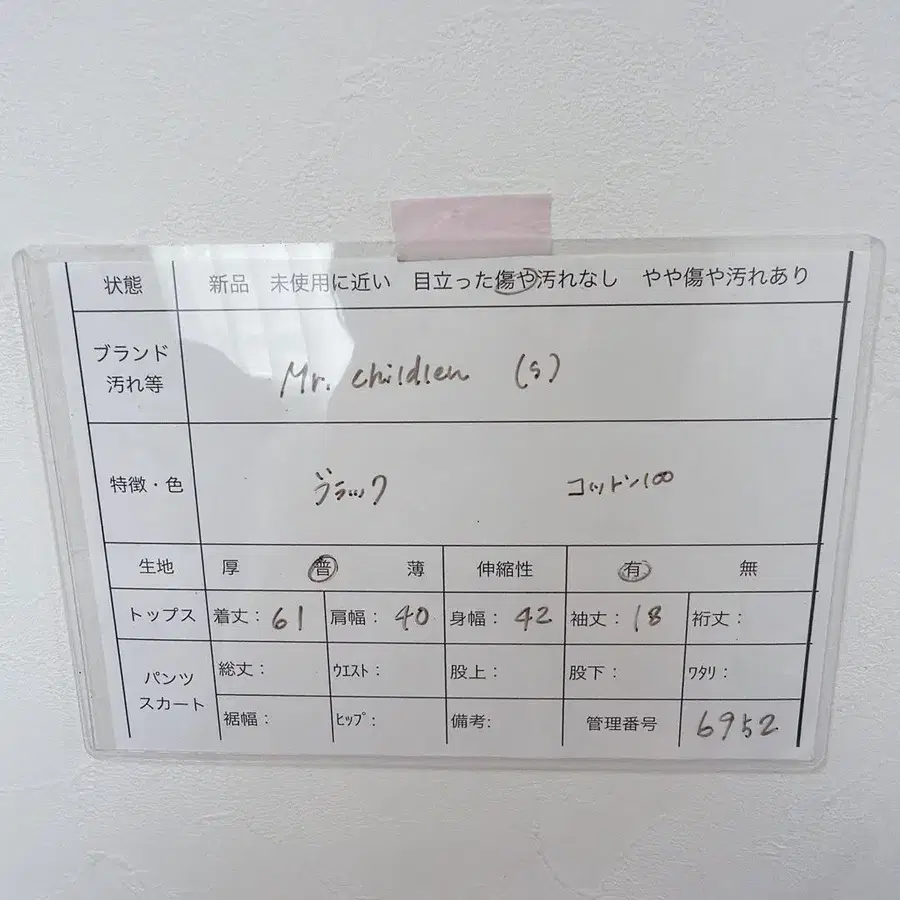 状態 新品 未使用に近い 目立った傷や汚れなし やや傷や汚れあり
ブランド
汚れ等
Mr. children (S)
特徴・色 ブラック コットン100
生地 厚 普 薄 伸縮性 有 無
トップス 着丈：61 肩幅：40 身幅：42 袖丈：18 裄丈：
パンツ
スカート
総丈： ｳｴｽﾄ： 股上： 股下： ﾜﾀﾘ：
裾幅： ﾋｯﾌﾟ： 備考: 管理番号 6952